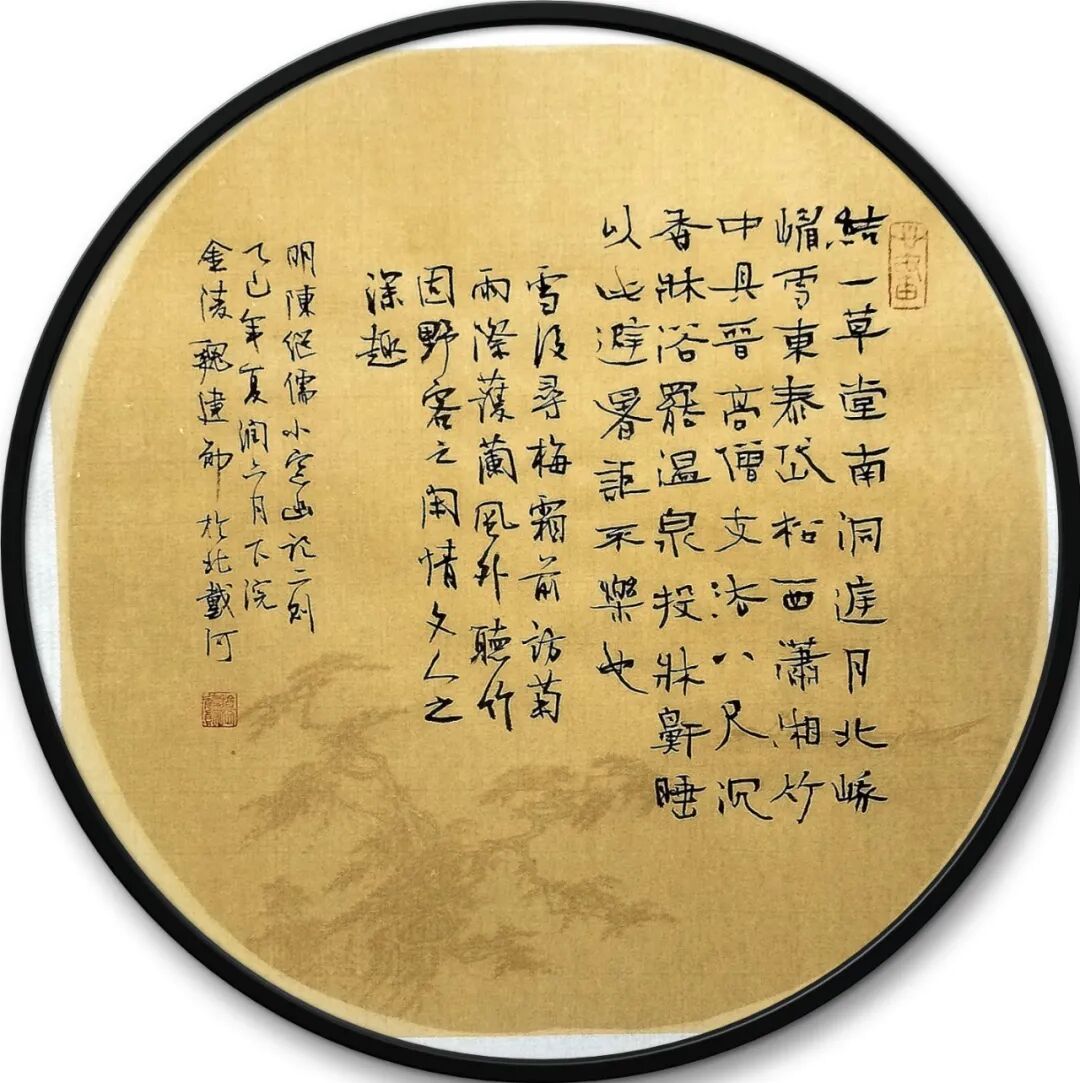 結一草堂南洞庭月北峨
嵋雪東泰岱松西瀟湘竹
中具晉高僧支法八尺沉
香牀浴罷温泉投牀鼾睡
以此避暑詎不樂也
雪後尋梅霜前訪菊
雨際護蘭風外聽竹
固野客之閑情文人之
深趣
明陳继儒小窓幽记二则
乙巳年夏润六月下浣
金陵魏建於北戴河